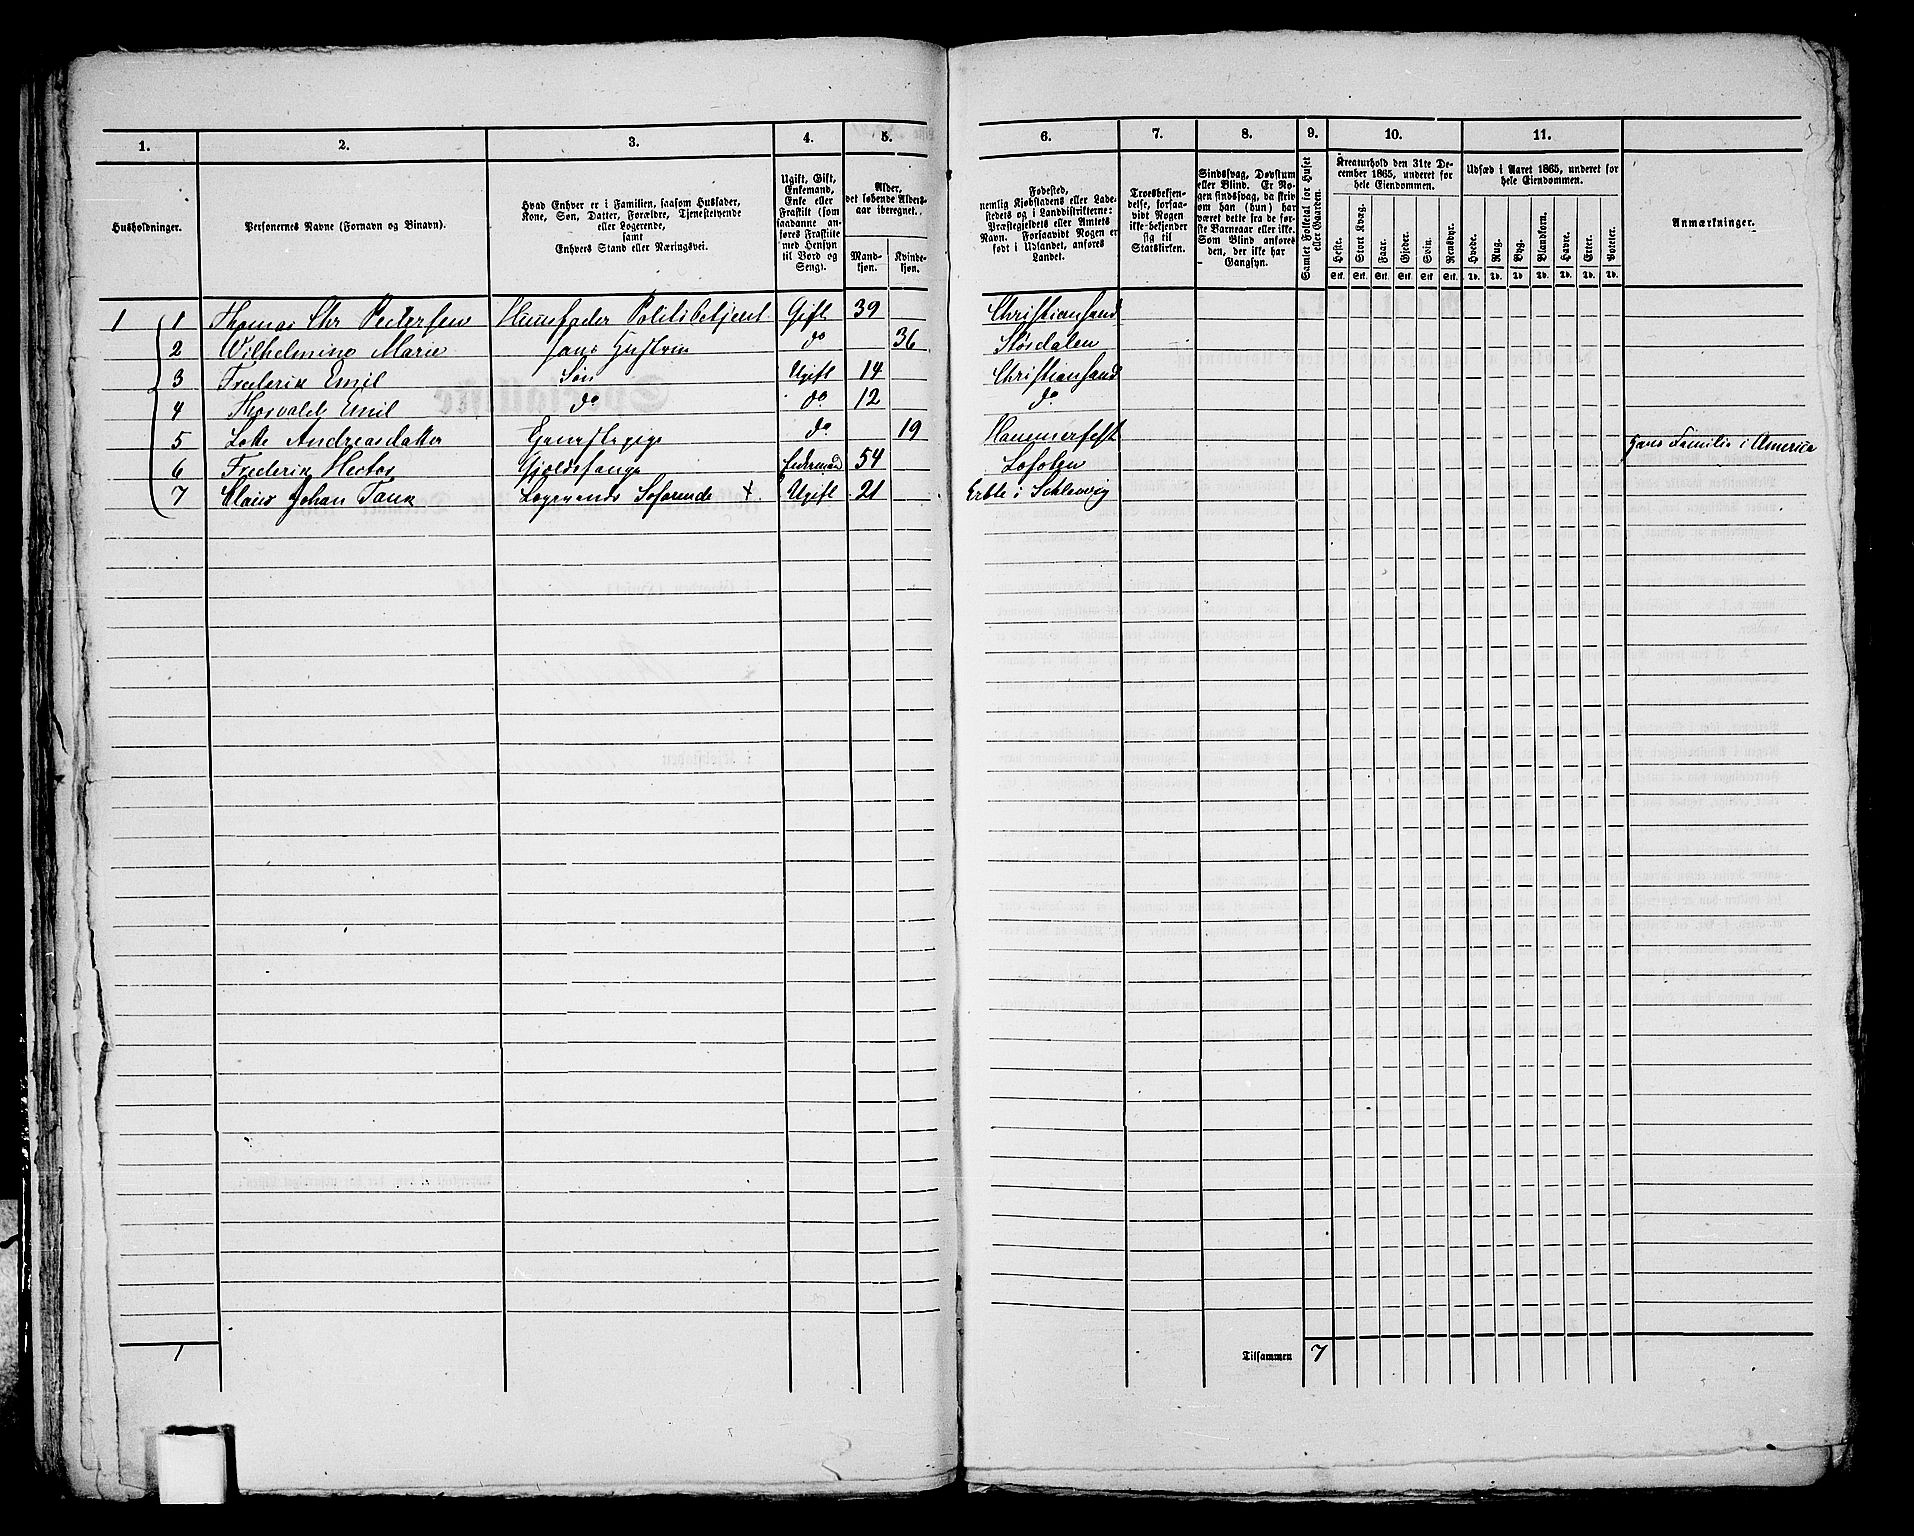 1.
2.
3.
4.
5.
6.
7.
8.
9.
10.
11.
Husholdninger.
Personernes Navne (Fornavn og Binavn).
Hvad Enhver er i Familien, saasom Husfader,
Kone, Søn, Datter, Forældre, Tjenestetyende
eller Logerende,
samt
Enhvers Stand eller Næringsvei.
Ugift, Gift,
Enkemand,
Enke eller
Fraskilt (som
saadanne an-
føres Fraskilte
med Hensyn
til Bord og
Seng).
Alder,
det løbende Alders-
aar iberegnet.
Mand-
kjøn.
Kvinde-
kjøn.
Fødested,
nemlig Kjøbstadens eller Lade-
stedets og i Landdistrikterne:
Præstegjeldets eller Amtets
Navn. Forsaavidt Nogen er
født i Udlandet, anføres
Landet.
Troesbekjen-
delse, forsaa-
vidt Nogen
ikke-bekjender
sig til
Statskirken.
Sindssvag, Døvstum
eller Blind. Er No-
gen sindssvag, da skriv
om han (hun) har
været dette fra de før-
ste Barneaar eller ikke.
Som Blind anføres
den, der ikke har
Gangsyn.
Samlet Folketal for Huset
eller Gaarden.
Kreaturhold den 31te De-
cember 1865, underet for
hele Eiendommen.
Heste.
Stort Kvæg.
Faar.
Gjeder.
Svin.
Rensdyr.
Stk. Stk. Stk. Stk. Stk. Stk.
Udsæd i Aaret 1865, underet for
hele Eiendommen.
Hvede.
Rug.
Byg.
Blandkorn.
Havre.
Erter.
Poteter.
Td. Td. Td. Td. Td. Td. Td.
Anmærkninger.
1 1 Thomas Chr Pedersen Huusfader Politibetjent Gift 39 Christiansand
2 Wilhelmine Marie hans Hustrue do 36 Størdalen
3 Frederik Emil Søn Ugift 14 Christiansand
4 Thorvald Emil do do 12 do
5 Lotte Andreasdatter do 19 Hammerfest
6 Frederik Hector 54 Lofoten Hans Familie i America
7 Claus Johan Tank Logerende Søfarende + Ugift 21 i Schlesvig
1
Tilsammen 7